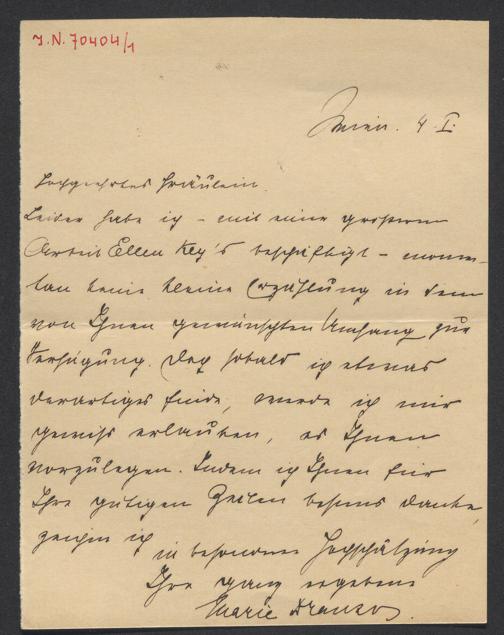 J.N. 70404/1
Wien. 4. I.
Hochgeehrtes Fräulein
Leider habe ich – mit einer grösseren
Arbeit Ellen Key's beschäftigt – momen-
tan keine kleine Erzählung in dem
von Ihnen gewünschten Umfang zur
Verfügung. Doch sobald ich etwas
derartiges finde, werde ich mir
gewiss erlauben, es Ihnen
vorzulegen. Indem ich Ihnen für
Ihre gütigen Zeilen bestens danke,
zeichne ich
in besonderer Hochschätzung
Ihre ganz ergebene
Marie Franzos.